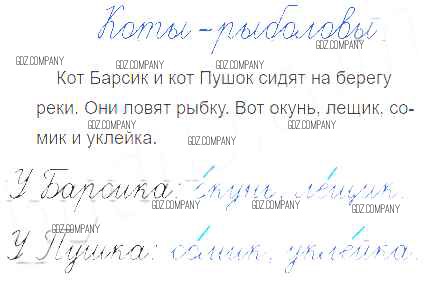 Коты – рыболовы
GDZ.COMPANY
GDZ.COMPANY
Кот Барсик и кот Пушок сидят на берегу
GDZ.COMPANY
реки. Они ловят рыбку. Вот окунь, лещик, со-
GDZ.COMPANY GDZ.COMPANY GDZ.COMPANY
мик и уклейка.
GDZ.COMPANY
У Барсика: окунь, лещик.
GDZ.COMPANY GDZ.COMPANY GDZ.COMPANY
GDZ.COMPANY
У Пушка: сомик, уклейка.